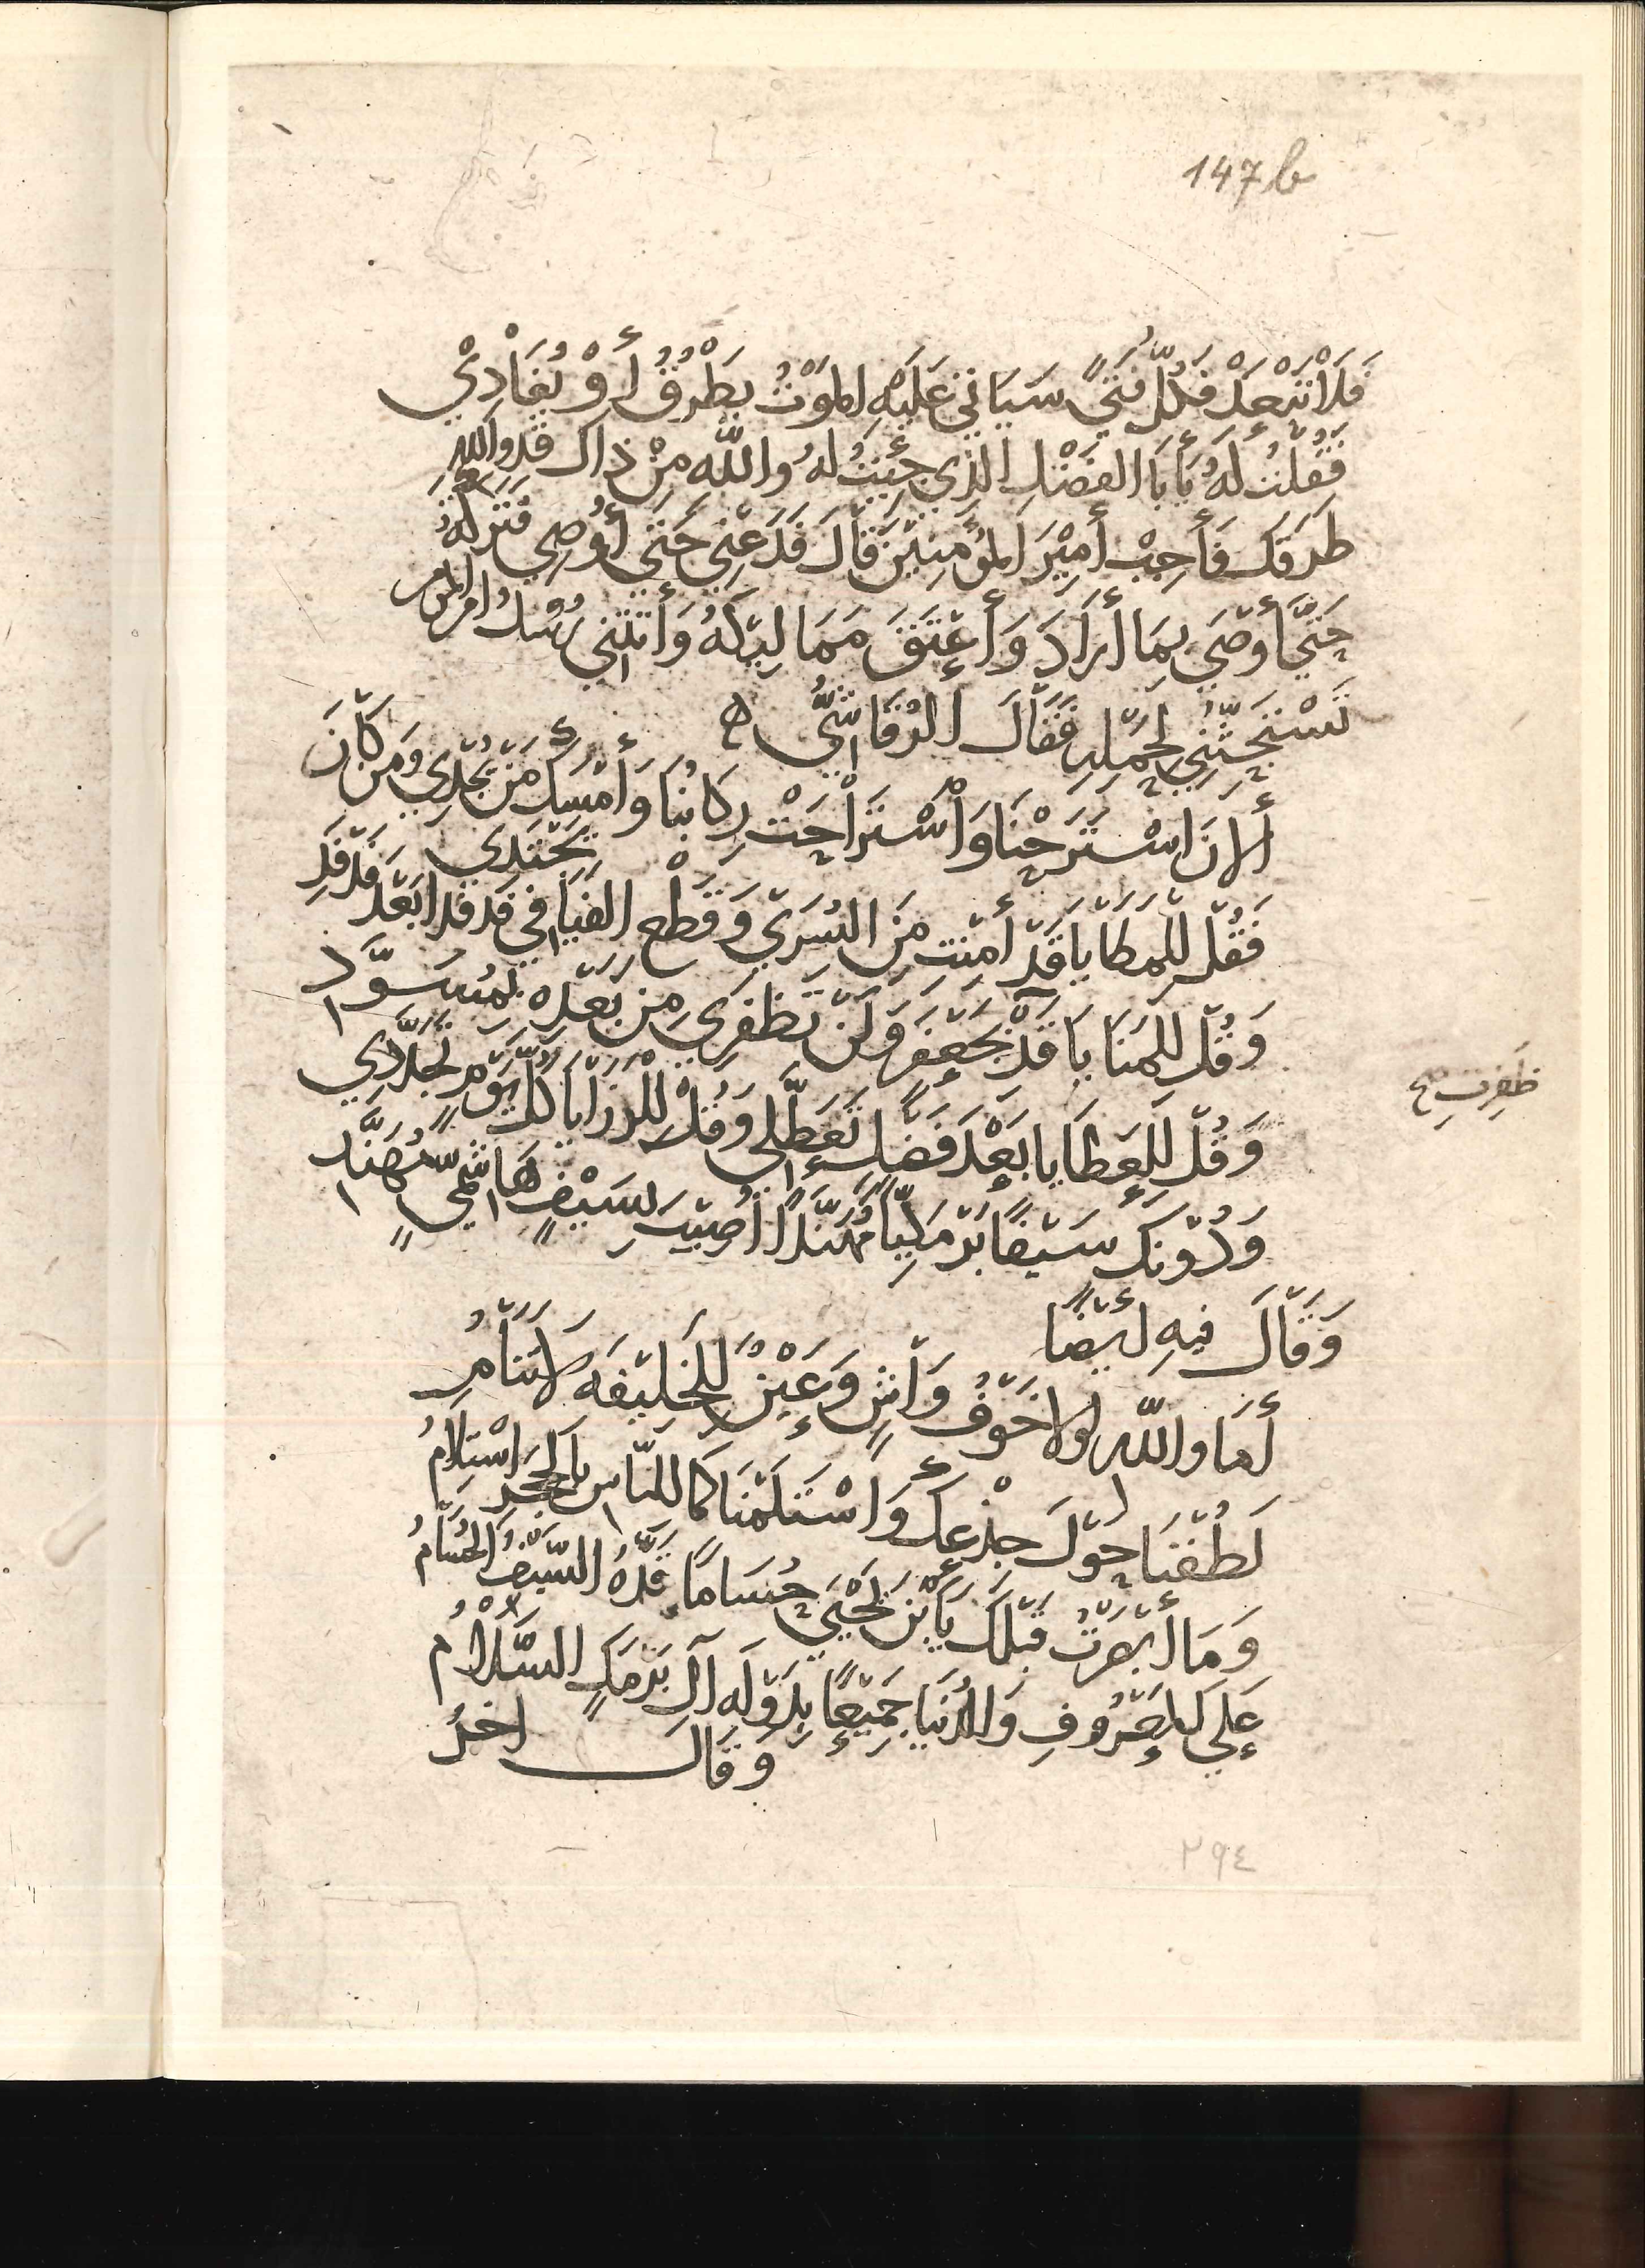 147b
فَلَا تَبْعَدْ فَكُلُّ فَتًى سَيَأتِي عَلَيْهِ المَوْتُ يَطْرُقُ أَوْ يُغَادِيْ
فَقُلتُ لَهُ يَأبَا الفَضْلِ الَّذِي جِئتُ لَهُ والله مِنْ ذاك قَد والله
طَرَقَكَ فَأَجِبْ أَمِيْرَ المُؤمِنِيْنَ قَالَ فَدَعْنِي حَتَى أُوْصِي فَتَرَكتُهُ
حَتَّى أَوْصَى بِمَا أَرَادَ وَأَعْتَقَ مَمَالِيْكَهُ وَأَتَتْنِي رُسُلُ امير المومنين
تَسْتَحِثُّنِي بِحَمْلِهِ فَقَالَ الرُقَاشِيُّ
أَلانَ اسْتَرَحْنَا وَاسْتَرَاحَتْ رِكَابُنَا وَأَمْسَكَ مَنْ يُجْدِي وَمَن كَانَ يَجْتَدِي
فَقُلْ لِلْمَطَايَا قَدْ أَمِنْتِ مِنَ السُرَى وَقَطْعِ الفَيَافِي فَدْفَدًا بَعْدَ فَدْفَدِ
وَقُلْ لِلمَنَايَا قَدْ بِجَعْفَرَ وَلَنْ تَظْفَرِي مِن بَعْدِهِ بِمُسَوَّدِ
ظَفِرتِ صح
وَقُلْ لِلْعَطَايَا بَعْدَ فَضْلٍ تَعَطَّلِي وَقُلْ لِلْرَزَايَا كُلَّ يَوْمٍ تَجَدَّدِي
وَدُوْنَكَ سَيْفًا بَرْمَكِيًّا مُهَنَّدًا أُصِيْبَ بِسَيْفٍ هَاشِمِيٍّ مُهَنَّدِ
وَقَالَ فِيهِ أَيْضًا
أَمَا واللهِ لولا خَوْفُ وَاشٍ وَعَيْنٌ لِلْخَلِيْفَه لَا تَنَامُ
لَطُفْنَا حَوْلَ جِذْعِكَ وَاسْتَلَمْنَا كَمَا لِلنَّاسِ بِالحَجَرِ اسْتِلَامُ
وَمَا أَبْصَرْتُ قَبْلَكَ يَابْنَ يَحْيَى حُسَامًا قَدَّهُ السَّيْفُ الحُسَامُ
عَلَى المَعْرُوفِ وَالدُنْيَا جَمِيْعًا بِدَوْلَهِ آلِ بَرْمَكٍ السَّلَامُ
وَقَالَ اخرُ
٢٩٤